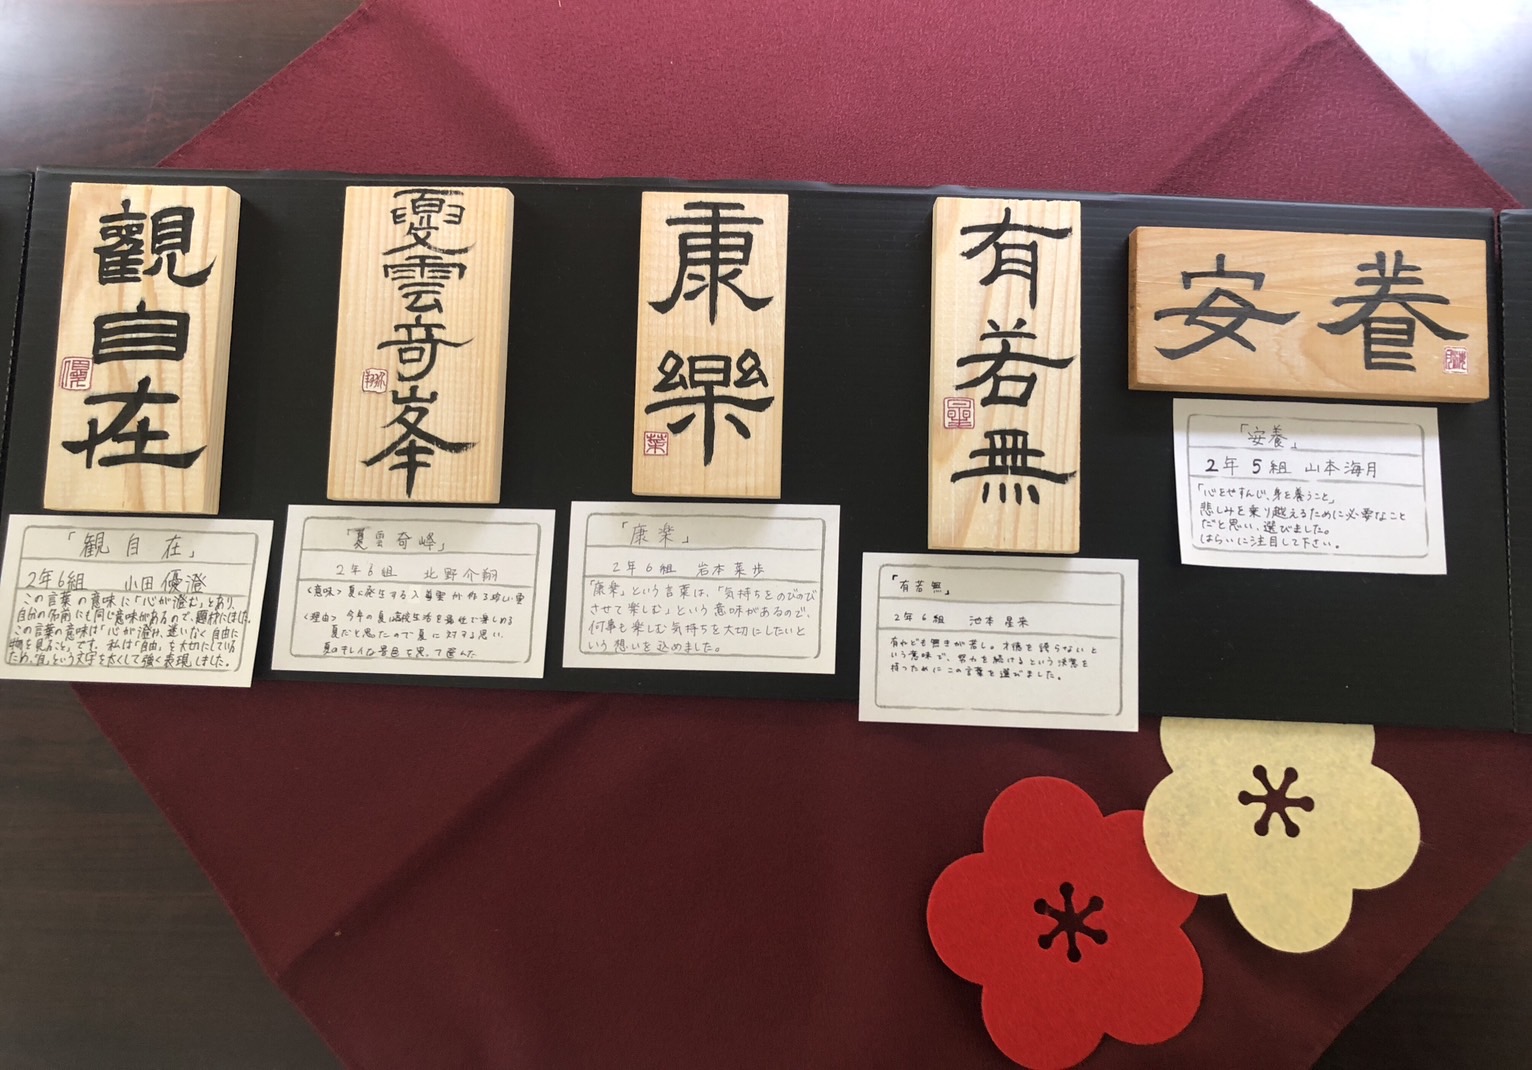 觀自在
優
「観自在」
2年6組 小田優澄
この言葉の意味に「心が澄む」とあり、
自分の名前にも同じ意味があるので、題材にしました。
この言葉の意味は「心が澄み、迷いなく自由に
物を見ること」です。私は「自由」を大切にしている
ため、「自」という文字を太くして強く表現しました。
夏雲奇峰
翔
「夏雲奇峰」
2年6組 北野介翔
<意味>夏に発生する入道雲が作る珍しい雲
<理由>今年の夏は高校生活を幸せで楽しめる
夏だと思ったので夏に対する思い、
夏のキレイな景色を思って選んだ
康樂
菜
「康楽」
2年6組 岩本菜歩
「康楽」という言葉は、「気持ちをのびのび
させて楽しむ」という意味があるので、
何事も楽しむ気持ちを大切にしたいと
いう想いを込めました。
有若無
星
「有若無」
2年6組 池本星来
有れども無きが若し。才徳を誇らないと
いう意味で、努力を続けるという決意を
持つためにこの言葉を選びました。
安養
「安養」
2年5組 山本海月
「心をやすんじ、身を養うこと」
悲しみを乗り越えるために必要なこと
だと思い、選びました。
はらいに注目して下さい。